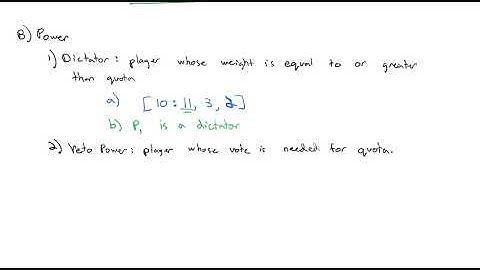 B) Power
1) Dictator: player whose weight is equal to or greater
than quota
a) [10: 11, 3, 2]
b) P₁ is a dictator
2) Veto Power: player whose vote is needed for quota.